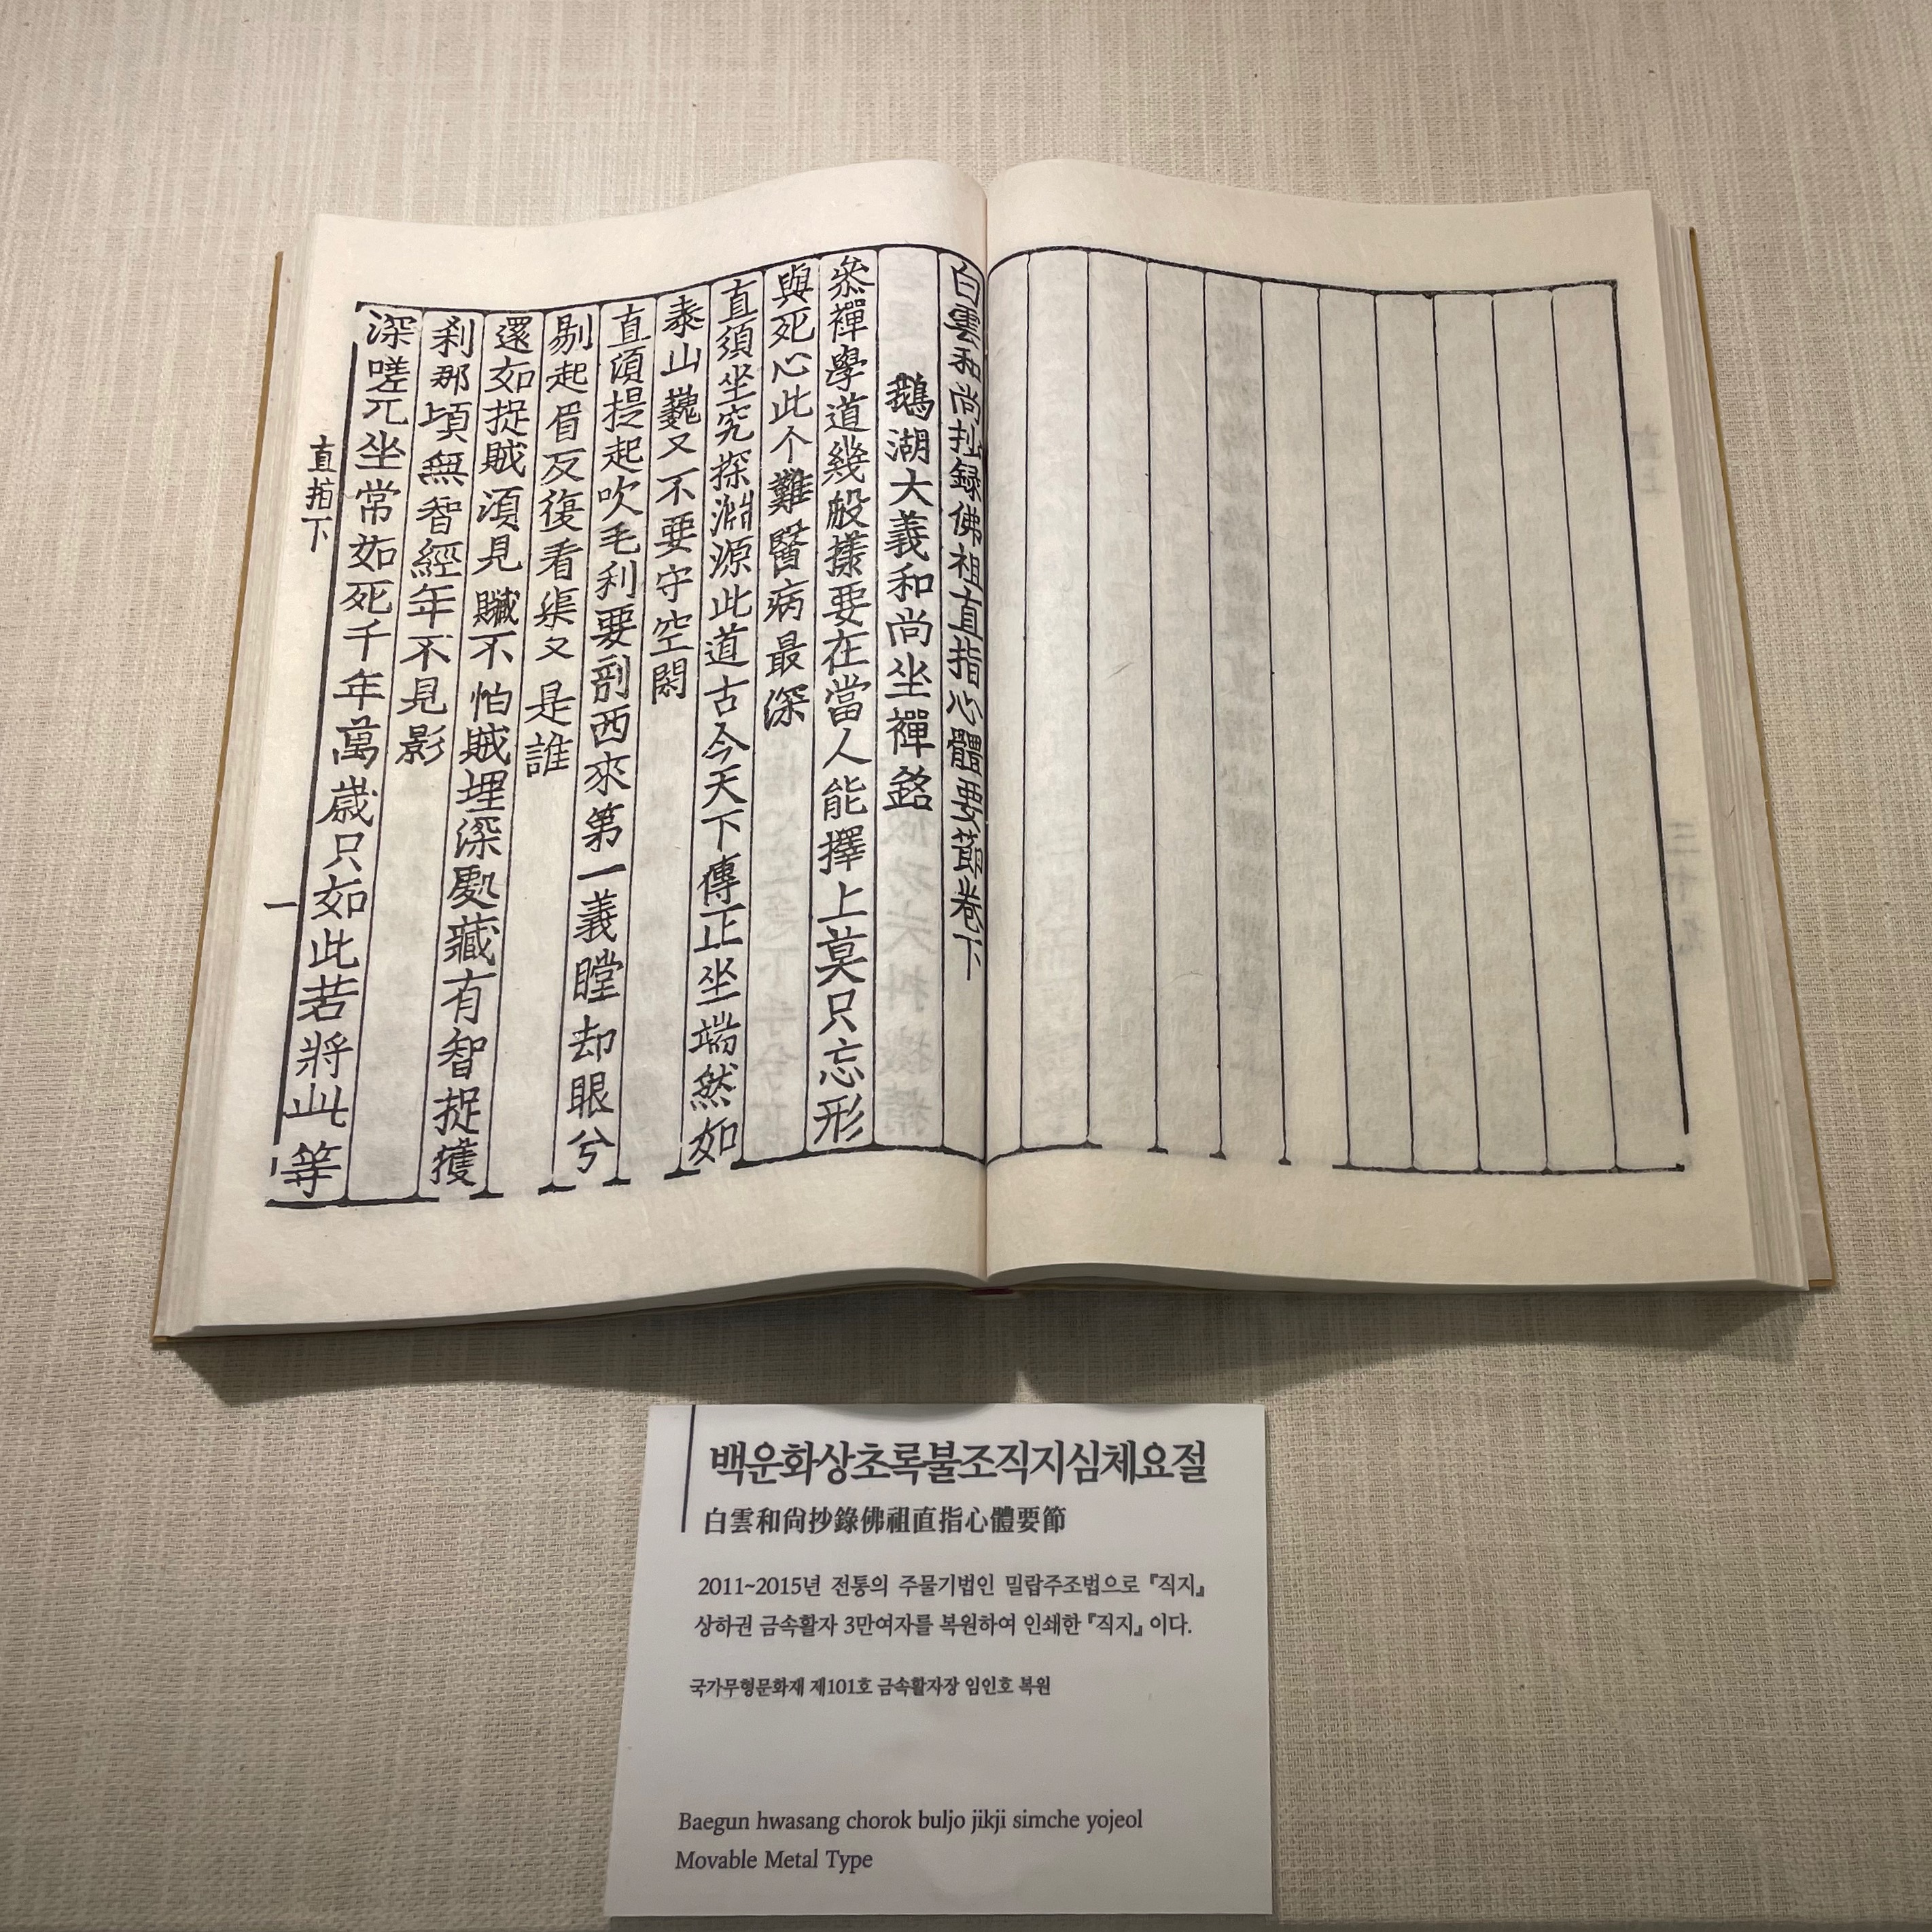 白雲和尚抄録佛祖直指心體要節卷下
鵝湖大義和尚坐禪銘
叅禪學道幾般㨾要在當人能擇上莫只忘形
與死心此个難醫病最深
直須坐究探淵源此道古今天下傳正坐端然如
泰山巍又不要守空閑
直須提起吹毛利要剖西來第一義瞠却眼兮
剔起眉反復看渠又是誰
還如捉賊須見贓不怕賊埋深處藏有智捉獲
刹那頃無智經年不見影
深嗟兀坐常如死千年萬歲只如此若將此等
直指下
一
백운화상초록불조직지심체요절
白雲和尙抄錄佛祖直指心體要節
2011~2015년 전통의 주물기법인 밀랍주조법으로 『직지』
상하권 금속활자 3만여자를 복원하여 인쇄한 『직지』이다.
국가무형문화재 제101호 금속활자장 임인호 복원
Baegun hwasang chorok buljo jikji simche yojeol
Movable Metal Type